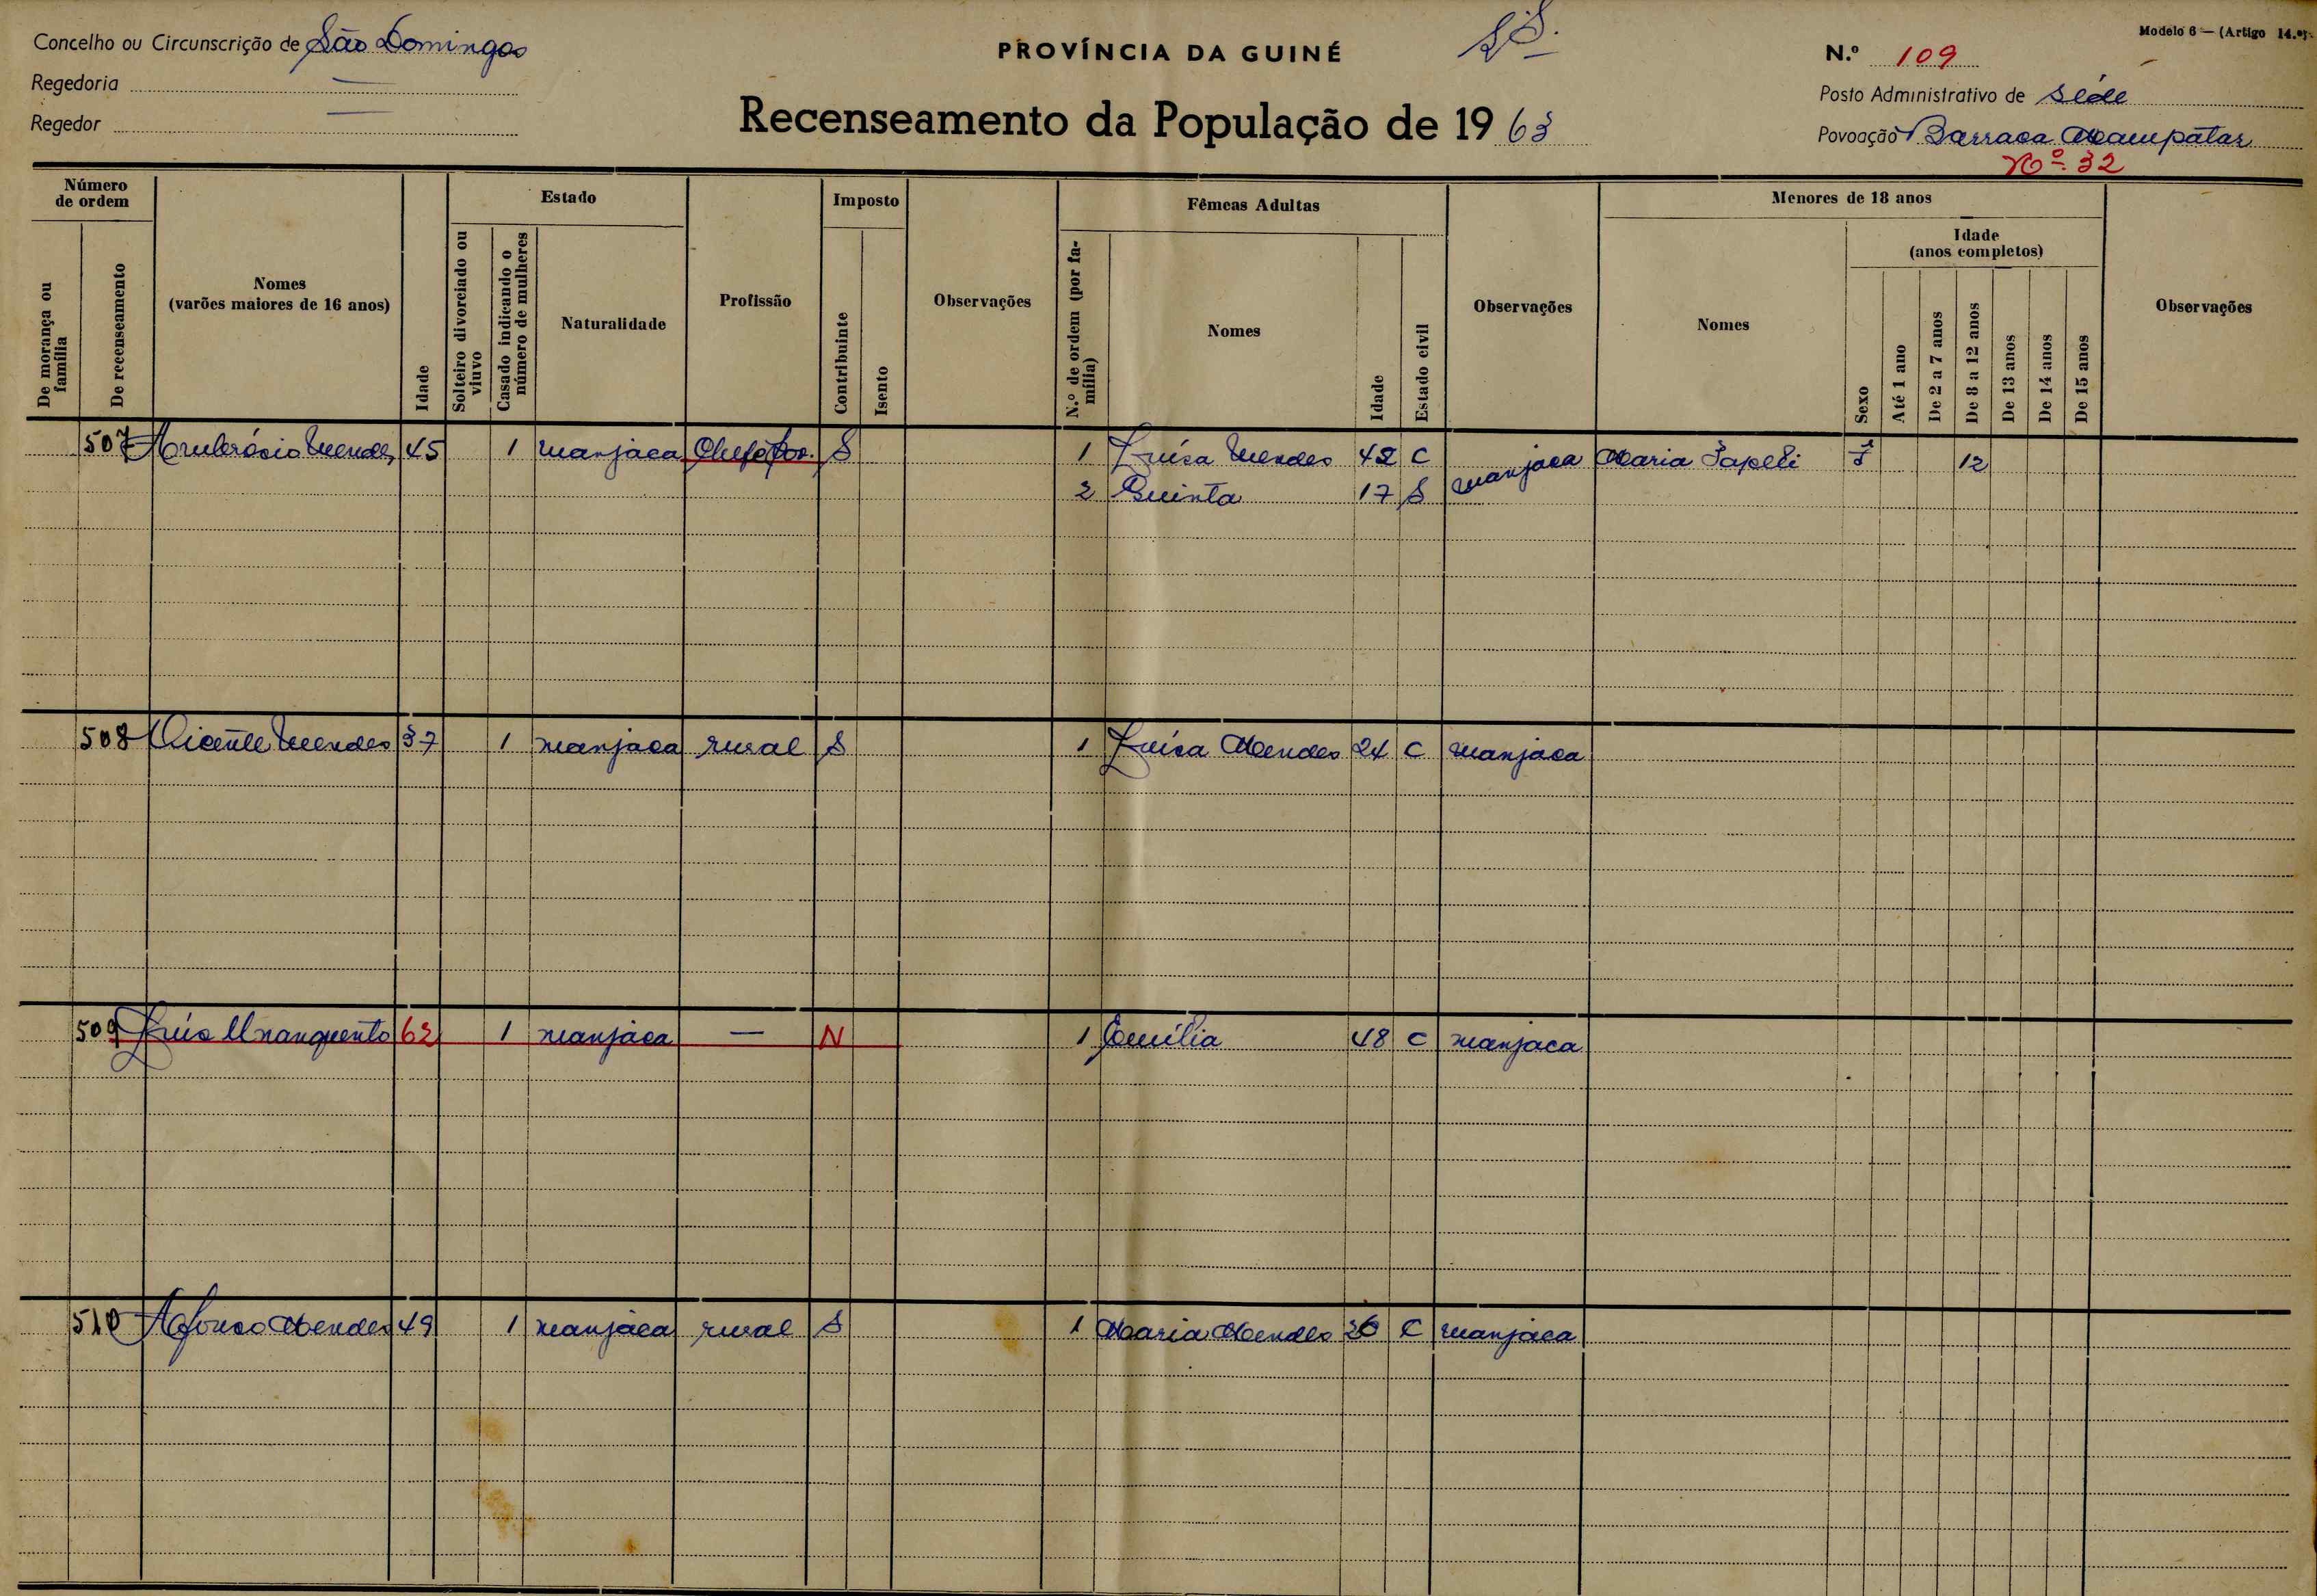 Concelho ou Circunscrição de São Domingos
Regedoria —
Regedor —
PROVÍNCIA DA GUINÉ
Recenseamento da População de 19 63
Modelo 6 — (Artigo 14.º)
N.º 109
Posto Administrativo de Séde
Povoação Barraca Mampatar
Nº. 32
Número de ordem
De morança ou família
De recenseamento
Nomes
(varões maiores de 16 anos)
Idade
Estado
Solteiro divorciado ou viuvo
Casado indicando o número de mulheres
Naturalidade
Profissão
Imposto
Contribuinte
Isento
Observações
Fêmeas Adultas
N.º de ordem (por família)
Nomes
Idade
Estado civil
Observações
Menores de 18 anos
Nomes
Sexo
Idade
(anos completos)
Até 1 ano
De 2 a 7 anos
De 8 a 12 anos
De 13 anos
De 14 anos
De 15 anos
Observações
507 Ambrósio Mendes 45 1 manjaca S 1 Luísa Mendes 42 C manjaca Maria F 12
2 Quinta 17 S
508 Vicente Mendes 37 1 manjaca rural S 1 Luísa Mendes 24 C manjaca
509 Luís 62 1 manjaca — N 1 Emília 48 C manjaca
510 Afonso Mendes 49 1 manjaca rural S 1 Maria Mendes C manjaca